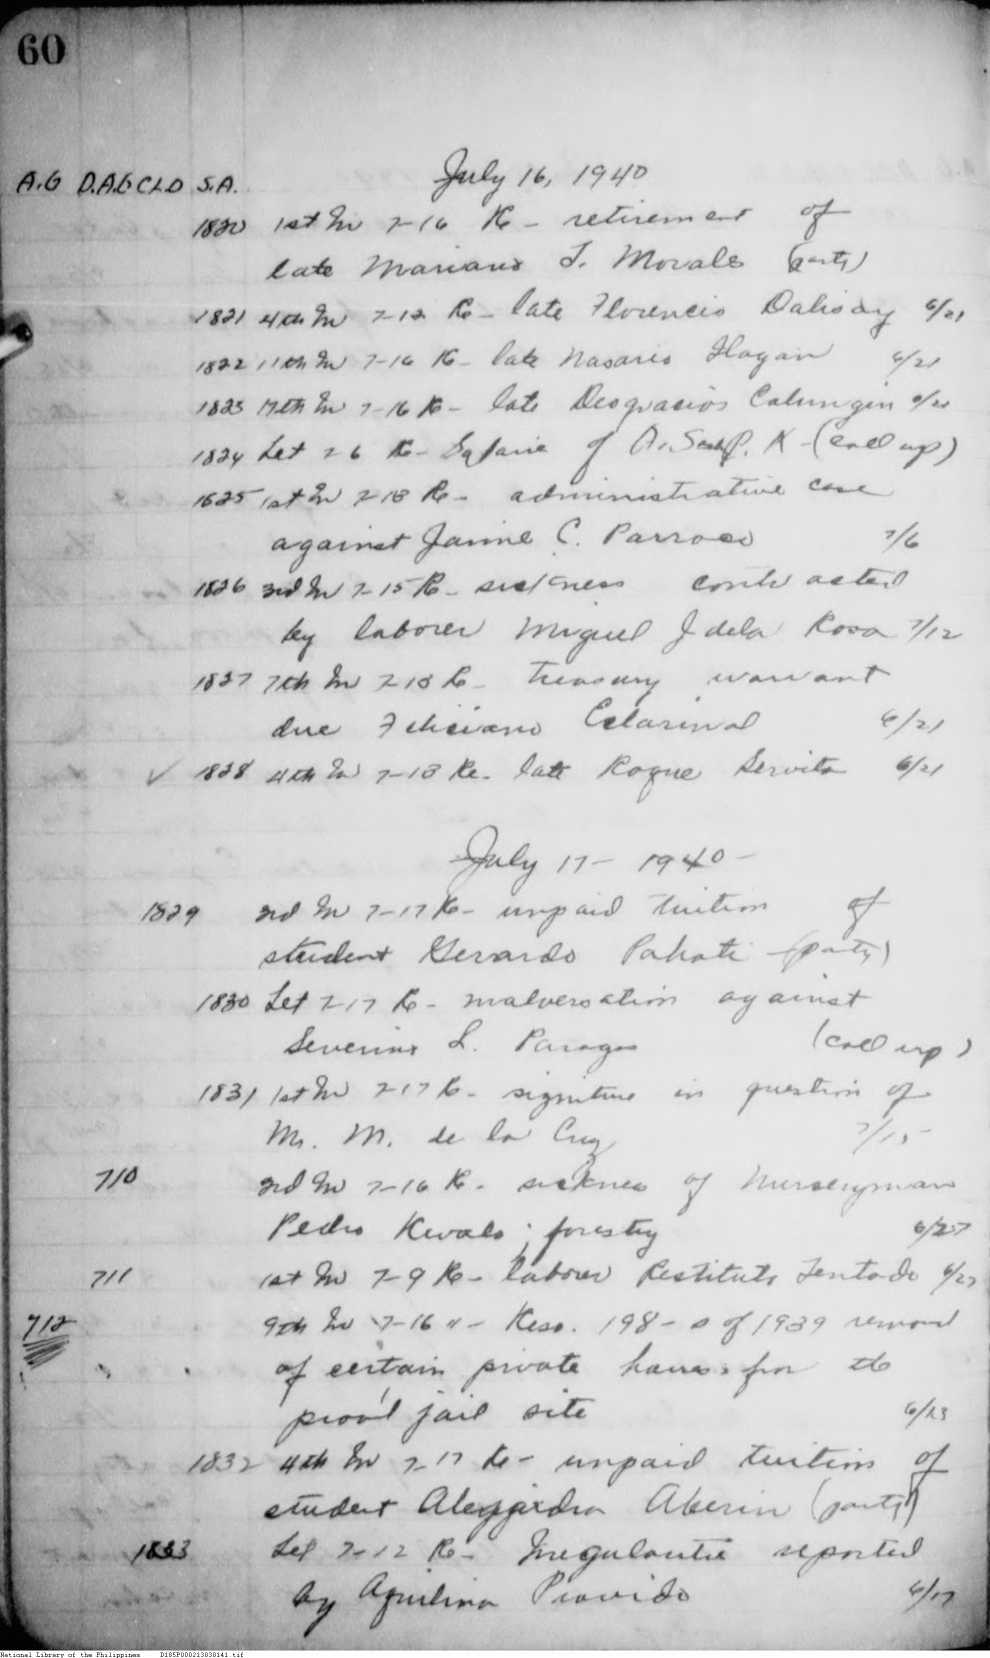 60
A.G D.A.G CLD S.A.
July 16, 1940
1820 1st In 7-16 Re - retirement of
late Mariano T. Morales (party)
1821 4th In 7-12 Re - late Florencio Dalisay 6/21
1822 11th In 7-16 Re - late Nasario Ilagan 6/21
1823 17th In 7-16 Re - late Deogracios Calungin 6/21
1824 Let 7-6 Re - of (call up)
1825 1st In 7-13 Re - administrative case
against Jaime C. Parroco 7/6
1826 3rd In 7-15 Re - sickness contracted
by laborer Miguel J dela Rosa 7/12
1827 7th In 7-13 Re - treasury warrant
due Feliciano Eclarinal 6/21
1828 4th In 7-13 Re - late Roque Servito 6/21
July 17 - 1940 -
1829 3rd In 7-17 Re - unpaid tuition of
student Gerardo Pahati (party)
1830 Let 7-17 Re - malversation against
Severino L. Paragas (call up)
1831 1st In 7-17 Re - signiture in question of
Mr. M. de la Cruz 7/15
710 3rd In 7-16 Re - sicknes of nurseryman
Pedro ; forestry 6/27
711 1st In 7-9 Re - laborer Restituto Tentado 6/27
712 9th In 7-16 " - Reso. 198 - s of 1939 removal
of certain private houses for the
prov'l jail site 6/23
1832 4th In 7-17 Re - unpaid tuition of
student Alejjandra Aberin (party)
1833 Let 7-12 Re - Irregularitie reported
by Aquilina Provido 6/17
National Library of the Philippines D185P000213838141.tif